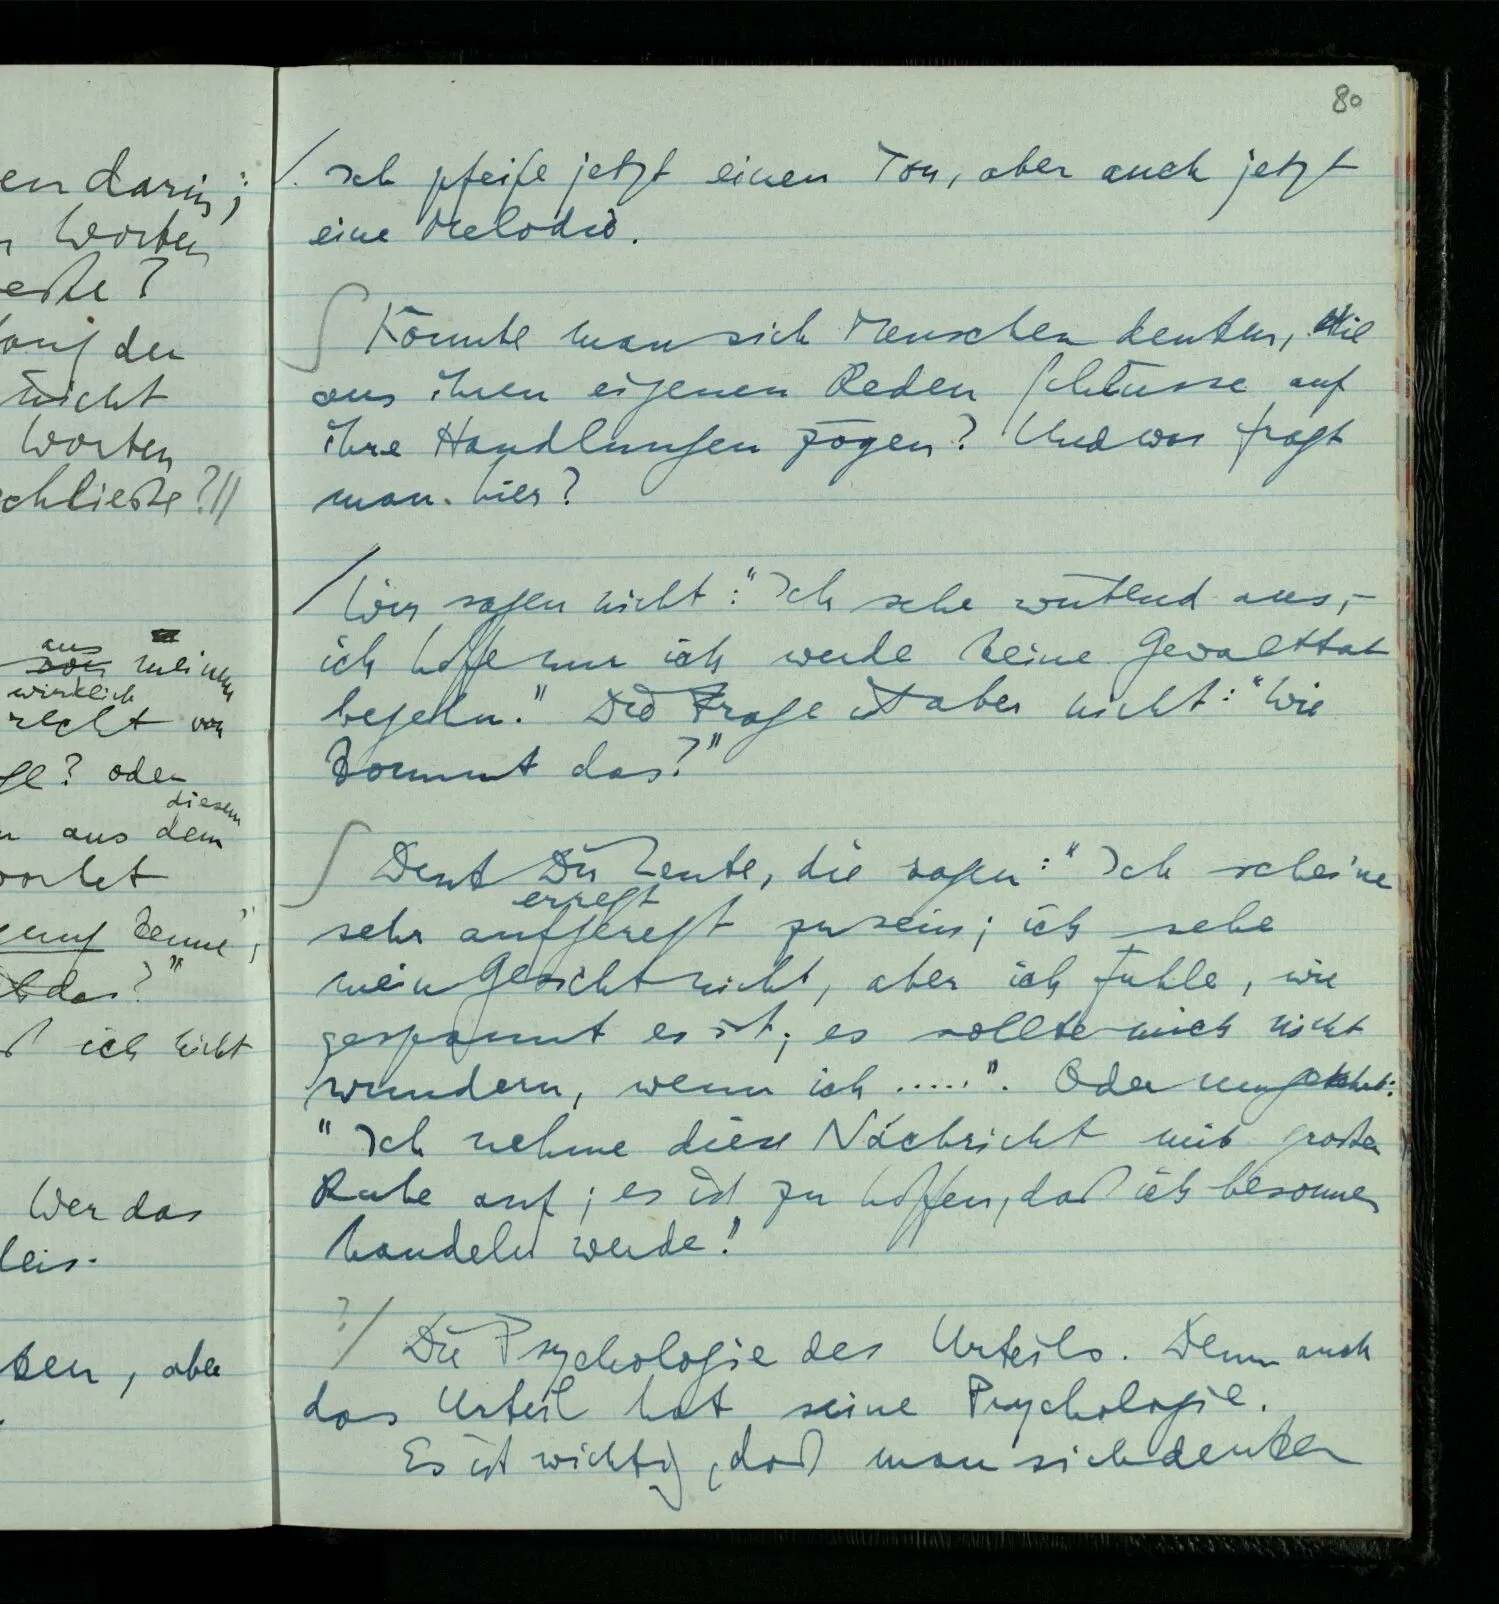 en darin;
n Worten
este?
auf der
nicht
Worten
schließe?//
aus
von meinem
wirklich
recht von
ge? oder
diesem
n aus dem
ortet
genug kenne",
das?"
ich nicht
Wer das
leis.
ken, aber
80
/. Ich pfeife jetzt einen Ton, aber auch jetzt
eine Melodie.
∫ Könnte man sich Menschen denken, die
aus ihren eigenen Reden Schlüsse auf
ihre Handlungen zögen? Und was fragt
man hier?
/ Wir sagen nicht: "Ich sehe wütend aus,–
ich hoffe nur ich werde keine Gewalttat
begehn." Die Frage ist aber nicht: "Wie
kommt das?"
∫ Denk Dir Leute, die sagen: "Ich scheine
erregt
sehr aufgeregt zu sein; ich sehe
mein Gesicht nicht, aber ich fühle, wie
gespannt es ist; es sollte mich nicht
wundern, wenn ich .....". Oder umgekehrt:
"Ich nehme diese Nachricht mit großer
Ruhe auf; es ist zu hoffen, daß ich besonnen
handeln werde."
?/ Die Psychologie des Urteils. Denn auch
das Urteil hat seine Psychologie.
Es ist wichtig, daß man sich denken